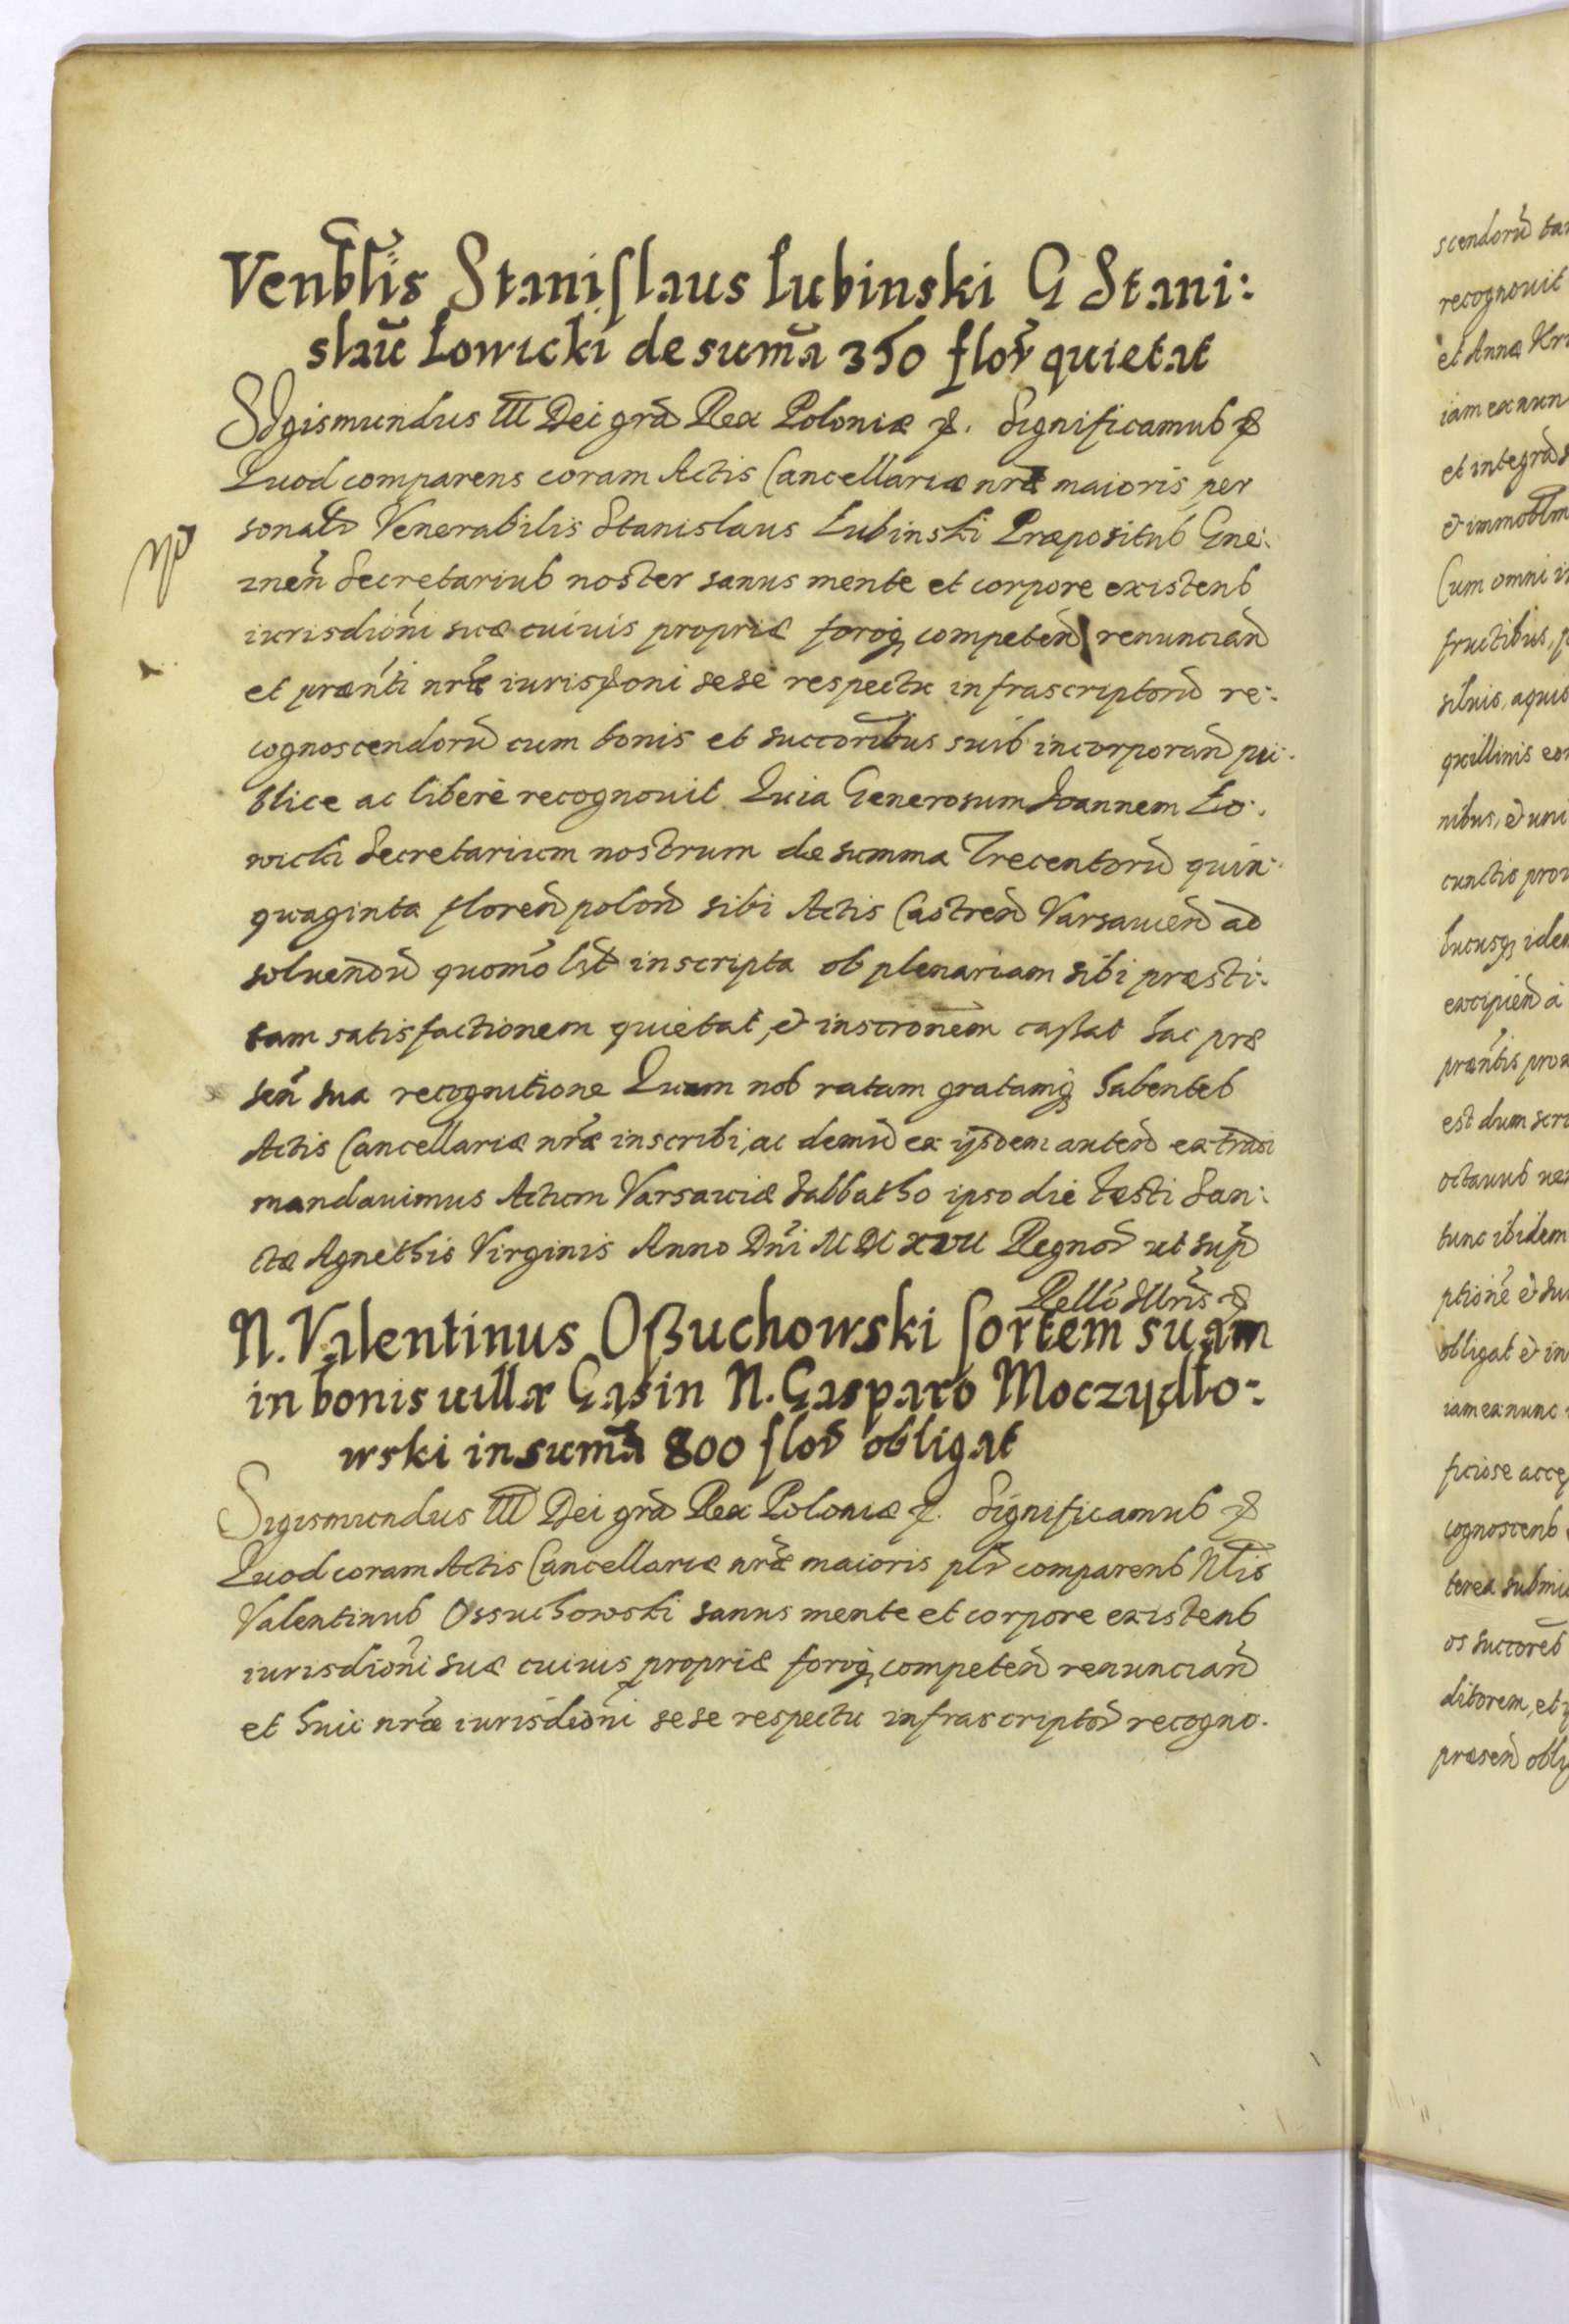 Venblis Stanislaus Łubinski G Stani:
slaū Łowicki de suma 350 flor quietat
Sigismundus III Dei gra Rex Poloniæ &. Significamus &
Quod comparens coram Actis Cancellariæ nræ maioris per
sonalr Venerabilis Stanislaus Łubinski Præpositus Gne:
znen Secretarius noster sanus mente et corpore existens
iurisdioni suæ cuivis propriæ foroq competen renuncian
et prænti nræ iurisdoni sese respectu infrascriptoru re:
cognoscendoru cum bonis et succoribus suis incorporan pu:
blice ac libere recognouit Quia Generosum Joannem Ło:
wicki Secretarium nostrum de summa Trecentoru quin:
quaginta floren polon sibi Actis Castren Varsauien ad
soluendu quomo lbt inscripta ob plenariam sibi præsti:
tam satisfactionem quietat, & inscronem cassat hac præ
sen sua recognitione Quam nos ratam gratamq habentes
Actis Cancellariæ nræ inscribi, ac demu ex ijsdem auten extradi
mandauimus Actum Varsauiæ Sabbatho ipso die festi San:
ctæ Agnethis Virginis Anno Dni MDCXVII Regnor ut sup
Rello Illris &
N. Valentinus Oßuchowski sortem suam
in bonis uillæ Gąsin N. Gasparo Moczydło:
wski in suma 800 flor obligat
Sigismundus III Dei gra Rex Poloniæ &. Significamus &
Quod coram Actis Cancellariæ nræ maioris plr comparens Nlis
Valentinus Ossuchowski sanus mente et corpore existens
iurisdioni suæ cuiuis propriæ foroq competen renuncian
et huic nræ iurisdioni sese respectu infrascriptor recogno.
scendoru
recognouit
et Annæ
iam ex nun
et integra
& immoblm
Cum omni
fructibus,
siluis, aquis
nibus, & uni
cunctis
excipien a
præntis
est dum
octauus
tunc ibidem
ptione &
obligat & in
iam ex nunc
ficiose
cognoscens
terea
os succores
ditorem, et
præsen